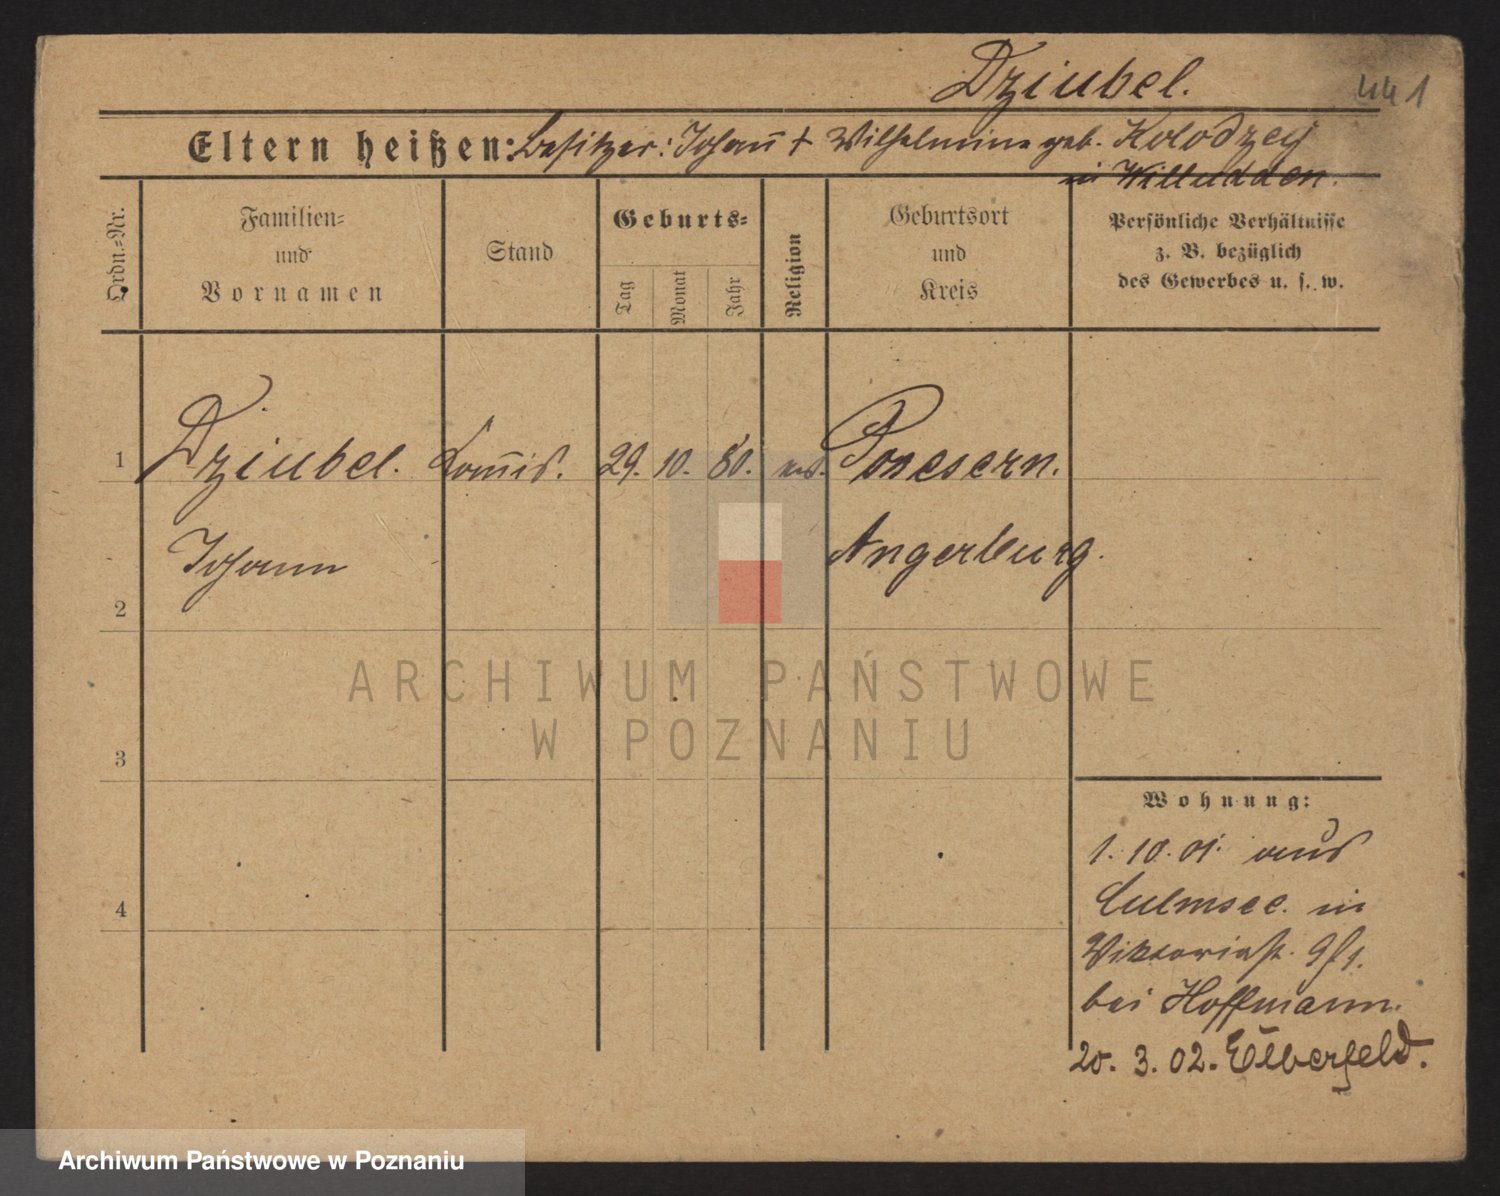 Dziubel.
441
Eltern heißen: Besitzer: Johann̄ + Wilhelmine geb. Kolodzey
in Willudden.
Ordn.=Nr.
Familien=
und
Vornamen
Stand
Geburts=
Tag
Monat
Jahr
Religion
Geburtsort
und
Kreis
Persönliche Verhältnisse
z. B. bezüglich
des Gewerbes u. s. w.
1
Dziubel. Com̄is. 29. 10. 80. Possessern.
Johann Angerburg.
2
ARCHIWUM PAŃSTWOWE
W POZNANIU
3
Wohnung:
1. 10. 01. aus
Culmsee. in
4
Viktoriast. 9/1.
bei Hoffmann.
20. 3. 02. Elberfeld.
Archiwum Państwowe w Poznaniu